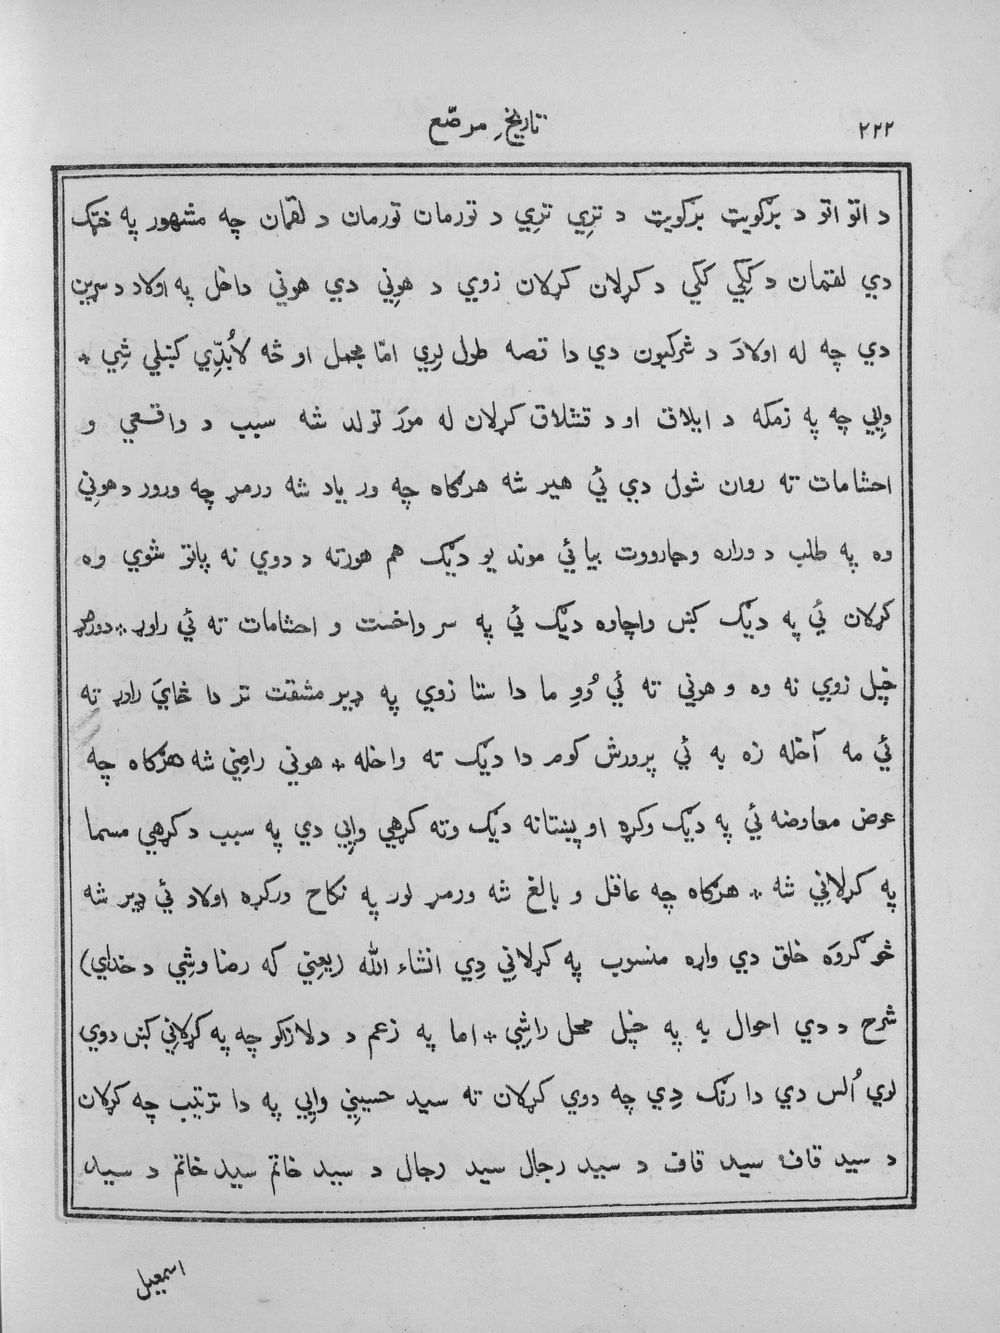 ۲۲۲
تاریخِ مرصّع
د اتو اتو د بزکویټ بزکویټ د تزي تزي د تورمان تورمان د لقمان چه مشهور په خټک
دي لقمان د ککي ککي د کړلان کړلان زوي د هوني دي هوني داخل په اولاد د سړبن
دي چه له اولادَ د شرکبون دي دا قصه طول لري امّا مجمل او څه لابُدّي کښلي شي *
وايي چه په زمکه د ایلاق او د قشلاق کړلان له مورَ تولد شه سبب د واقعي و
احشامات ته روان شول دي ئي هیر شه هرګاه چه ور یاد شه ورمړ چه ورور د هوني
وه په طلب د وراره وځمارووت بیا ئي موند یو دیګ هم هورته د دوي نه پاتو شوي وه
کړلان ئي په دیګ کښ واچاوه دیګ ئي په سر واخست و احشامات ته ئي راوړ * دورمړ
خپل زوي نه وه و هوني ته ئي وُوِ ما دا ستا زوي په ډیر مشقت تر دا ځايَ راوړ ته
ئي مه آخله زه به ئي پرورش کوم دا دیګ ته واخله * هوني راضي شه هرګاه چه
عوض معاوضه ئي په دیګ وکړه او پښتانه دیګ وته کړهي وايي دي په سبب د کړهي مسما
په کړلاني شه * هرګاه چه عاقل و بالغ شه ورمړ لور په نکاح ورکړه اولاد ئي ډیر شه
څو کروَه خلق دي واړه منسوب په کړلاني دِي انشاء الله (یعني که رضا وشِي د خداي)
شرح د دي احوال یه په خپل محل راشِي * اما په زعم د دلازاکو چه په کړلاني کښ دوي
لوي اُلس دي دا رنګ دِي چه دوي کړلان ته سید حسیني وايي په دا ترتیب چه کړلان
د سید قاف سید قاف د سید رجال سید رجال د سید خاتم سید خاتم د سید
اسمعیل